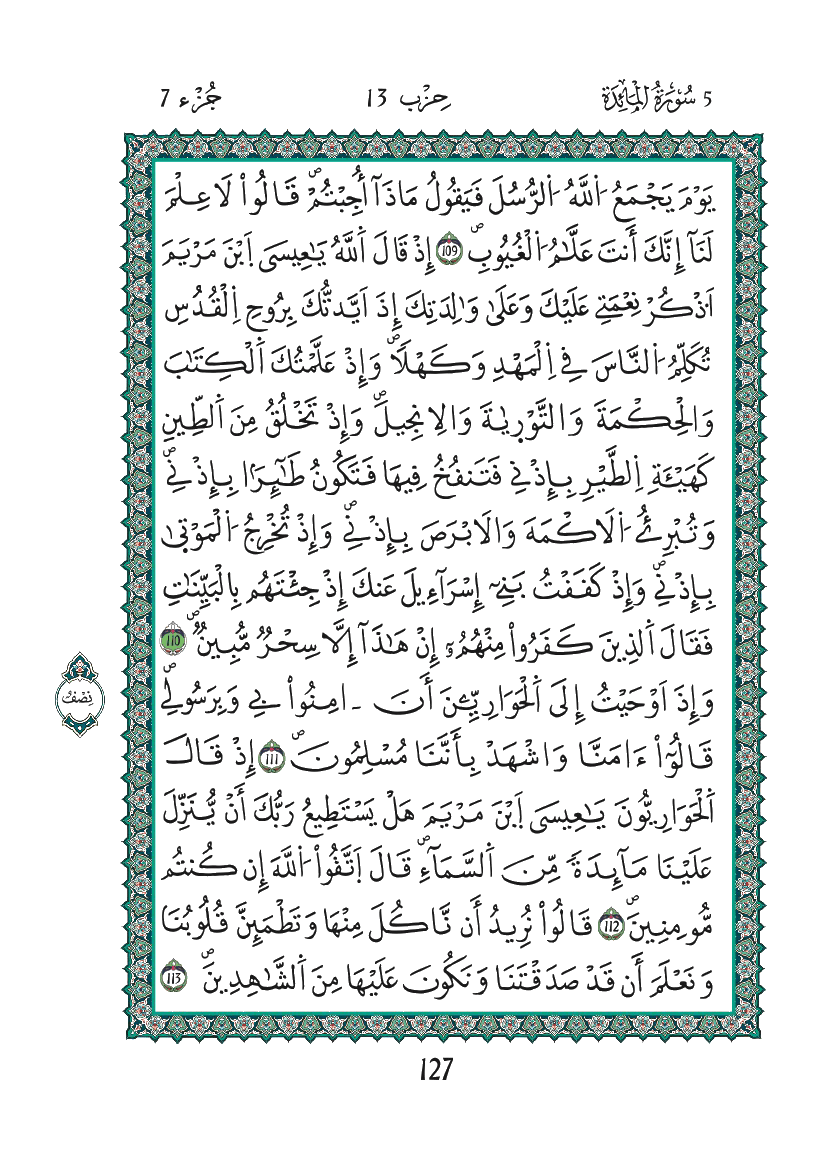 5 سُورَةُ الْمَائِدَة
حِزْب 13
جُزْء 7
يَوْمَ يَجْمَعُ اُللَّهُ اُلرُّسُلَ فَيَقُولُ مَاذَآ أُجِبْتُمْۖ قَالُواْ لَا عِلْمَ
لَنَآ إِنَّكَ أَنتَ عَلَّٰمُ اُلْغُيُوبِۖ 109 إِذْ قَالَ اَللَّهُ يَٰعِيسَى اَبْنَ مَرْيَمَ
اَذْكُرْ نِعْمَتِے عَلَيْكَ وَعَلَىٰ وَٰلِدَتِكَ إِذَ اَيَّدتُّكَ بِرُوحِ اِلْقُدُسِ
تُكَلِّمُ اُلنَّاسَ فِے اِلْمَهْدِ وَكَهْلاٗۖ وَإِذْ عَلَّمْتُكَ اَلْكِتَٰبَ
وَالْحِكْمَةَ وَالتَّوْرِيٰةَ وَالِانجِيلَۖ وَإِذْ تَخْلُقُ مِنَ اَلطِّينِ
كَهَيْـَٔةِ اِلطَّيْرِ بِإِذْنِے فَتَنفُخُ فِيهَا فَتَكُونُ طَٰٓئِراَۢ بِإِذْنِےۖ
وَتُبْرِئُ اُلَاكْمَهَ وَالَابْرَصَ بِإِذْنِےۖ وَإِذْ تُخْرِجُ اُلْمَوْتىٰ
بِإِذْنِےۖ وَإِذْ كَفَفْتُ بَنِےٓ إِسْرَآءِيلَ عَنكَ إِذْ جِئْتَهُم بِالْبَيِّنَٰتِ
فَقَالَ اَلذِينَ كَفَرُواْ مِنْهُمُۥٓ إِنْ هَٰذَآ إِلَّا سِحْرٞ مُّبِينٞۖ 110
وَإِذَ اَوْحَيْتُ إِلَى اَلْحَوَارِيِّـۧنَ أَنَ ـ امِنُواْ بِے وَبِرَسُولِےۖ
نِصْفُ
قَالُوٓاْ ءَامَنَّا وَاشْهَدْ بِأَنَّنَا مُسْلِمُونَۖ 111 إِذْ قَالَ
اَلْحَوَارِيُّونَ يَٰعِيسَى اَبْنَ مَرْيَمَ هَلْ يَسْتَطِيعُ رَبُّكَ أَنْ يُّنَزِّلَ
عَلَيْنَا مَآئِدَةٗ مِّنَ اَلسَّمَآءِۖ قَالَ اَتَّقُواْ اُللَّهَ إِن كُنتُم
مُّومِنِينَۖ 112 قَالُواْ نُرِيدُ أَن نَّاكُلَ مِنْهَا وَتَطْمَئِنَّ قُلُوبُنَا
وَنَعْلَمَ أَن قَدْ صَدَقْتَنَا وَنَكُونَ عَلَيْهَا مِنَ اَلشَّٰهِدِينَۖ 113
127